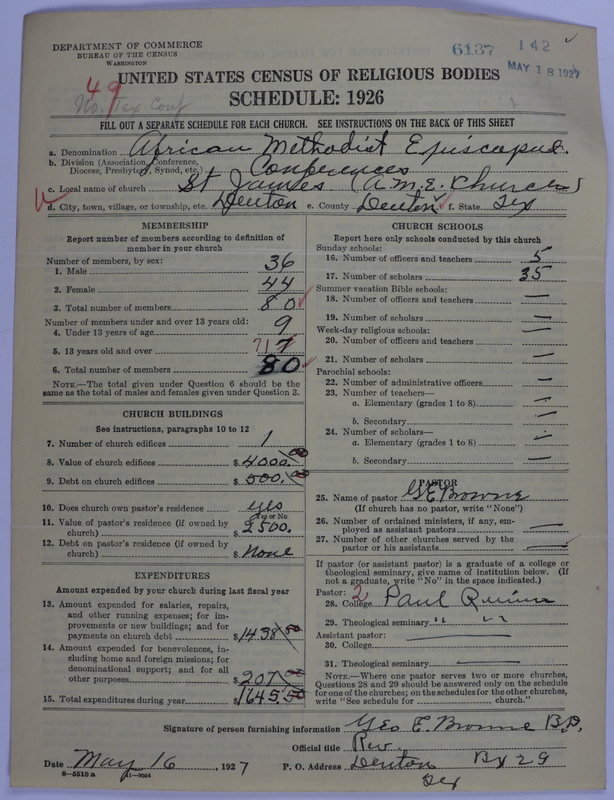 DEPARTMENT OF COMMERCE
BUREAU OF THE CENSUS
WASHINGTON
6137 142
MAY 18 1927
49
No. Tex Conf
UNITED STATES CENSUS OF RELIGIOUS BODIES
SCHEDULE: 1926
FILL OUT A SEPARATE SCHEDULE FOR EACH CHURCH. SEE INSTRUCTIONS ON THE BACK OF THIS SHEET
a. Denomination African Methodist Episcopal.
b. Division (Association, Conference, Diocese, Presbytery, Synod, etc.) Conferences
c. Local name of church St James (A.M.E. Church)
d. City, town, village, or township, etc. Denton e. County Denton f. State Tex
MEMBERSHIP
Report number of members according to definition of
member in your church
Number of members, by sex:
1. Male 36
2. Female 44
3. Total number of members 80
Number of members under and over 13 years old:
4. Under 13 years of age 9
5. 13 years old and over 71
6. Total number of members 80
NOTE.—The total given under Question 6 should be the
same as the total of males and females given under Question 3.
CHURCH BUILDINGS
See instructions, paragraphs 10 to 12
7. Number of church edifices 1
8. Value of church edifices $4000.00
9. Debt on church edifices $500.00
10. Does church own pastor's residence yes
Yes or No
11. Value of pastor's residence (if owned by
church) $2500.
12. Debt on pastor's residence (if owned by
church) $None
EXPENDITURES
Amount expended by your church during last fiscal year
13. Amount expended for salaries, repairs,
and other running expenses; for im-
provements or new buildings; and for
payments on church debt $1438.50
14. Amount expended for benevolences, in-
cluding home and foreign missions; for
denominational support; and for all
other purposes $207.00
15. Total expenditures during year $1645.50
CHURCH SCHOOLS
Report here only schools conducted by this church
Sunday schools:
16. Number of officers and teachers 5
17. Number of scholars 35
Summer vacation Bible schools:
18. Number of officers and teachers —
19. Number of scholars —
Week-day religious schools: —
20. Number of officers and teachers
21. Number of scholars —
Parochial schools:
22. Number of administrative officers —
23. Number of teachers—
a. Elementary (grades 1 to 8) —
b. Secondary —
24. Number of scholars—
a. Elementary (grades 1 to 8) —
b. Secondary —
PASTOR
25. Name of pastor G E Browne
(If church has no pastor, write "None")
26. Number of ordained ministers, if any, em-
ployed as assistant pastors —
27. Number of other churches served by the
pastor or his assistants —
If pastor (or assistant pastor) is a graduate of a college or
theological seminary, give name of institution below. (If
not a graduate, write "No" in the space indicated.)
Pastor: 2
28. College Paul Quinn
29. Theological seminary " "
Assistant pastor: —
30. College
31. Theological seminary —
NOTE.—Where one pastor serves two or more churches,
Questions 28 and 29 should be answered only on the schedule
for one of the churches; on the schedules for the other churches,
write "See schedule for church."
Signature of person furnishing information Geo E. Browne B.D.
Official title Rev.
Date May 16, 1927 P. O. Address Denton Bx 29
Tex
8—5518 a 11—9064